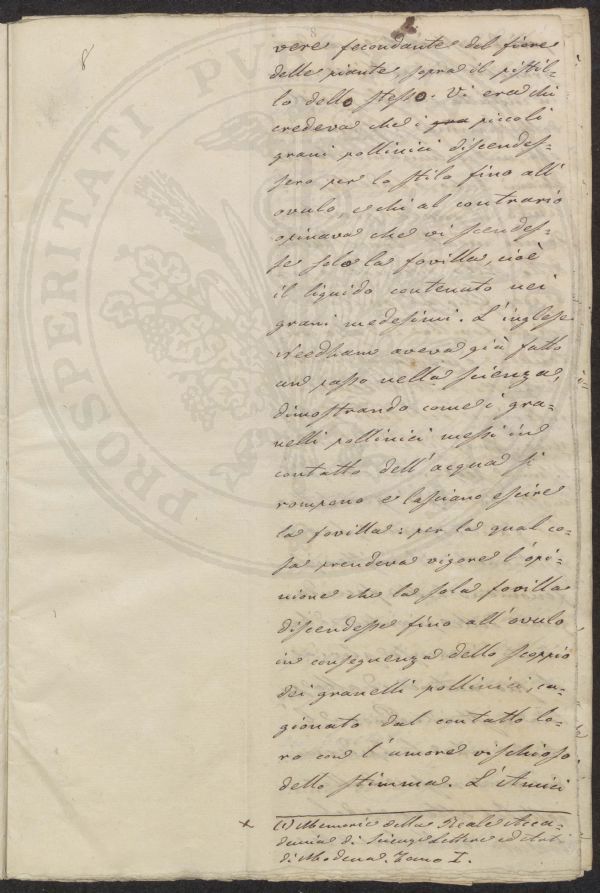 8
8
vere fecondante del fiore
delle piante, sopra il pistil-
lo dello stesso. Vi era chi
credeva che i gra piccoli
grani pollinici discendes-
sero per lo stilo fino all'
ovulo, e chi al contrario
opinava che vi scendes-
se solo la fovilla, cioè
il liquido contenuto nei
grani medesimi. L'inglese
Needham aveva già fatto
un passo nella scienza,
dimostrando come i gra-
nelli pollinici messi in
contatto dell'acqua si
rompano e lasciano escire
la fovilla: per la qual co-
sa prendeva vigore l'opi-
nione che la sola fovilla
discendesse fino all'ovulo
in conseguenza dello scoppio
dei granelli pollinici, ca-
gionato dal contatto lo-
ro con l'umore vischioso
dello stimma. L'Amici
(1) Memorie della Reale Acca-
demia di Scienze Lettere ed Arti
di Modena. Tomo I.
PROSPERITATI PU